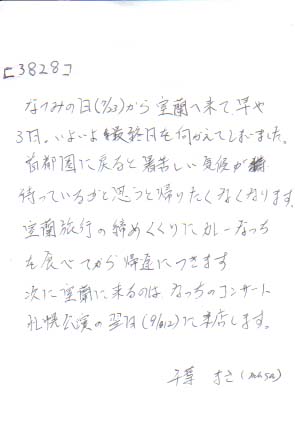 [3828]
なつみの日(7/23)から室蘭へ来て、早や
3日。いよいよ最終日を向かえてしまいました。
首都圏に戻ると暑苦しい気候が
待っているかと思うと帰りたくなくなります。
室蘭旅行の締めくくりにカレーなっち
を食べてから帰途につきます
次に室蘭に来るのは なっちのコンサート
札幌公演の翌日(9/12)に来店します。
千葉 まさ